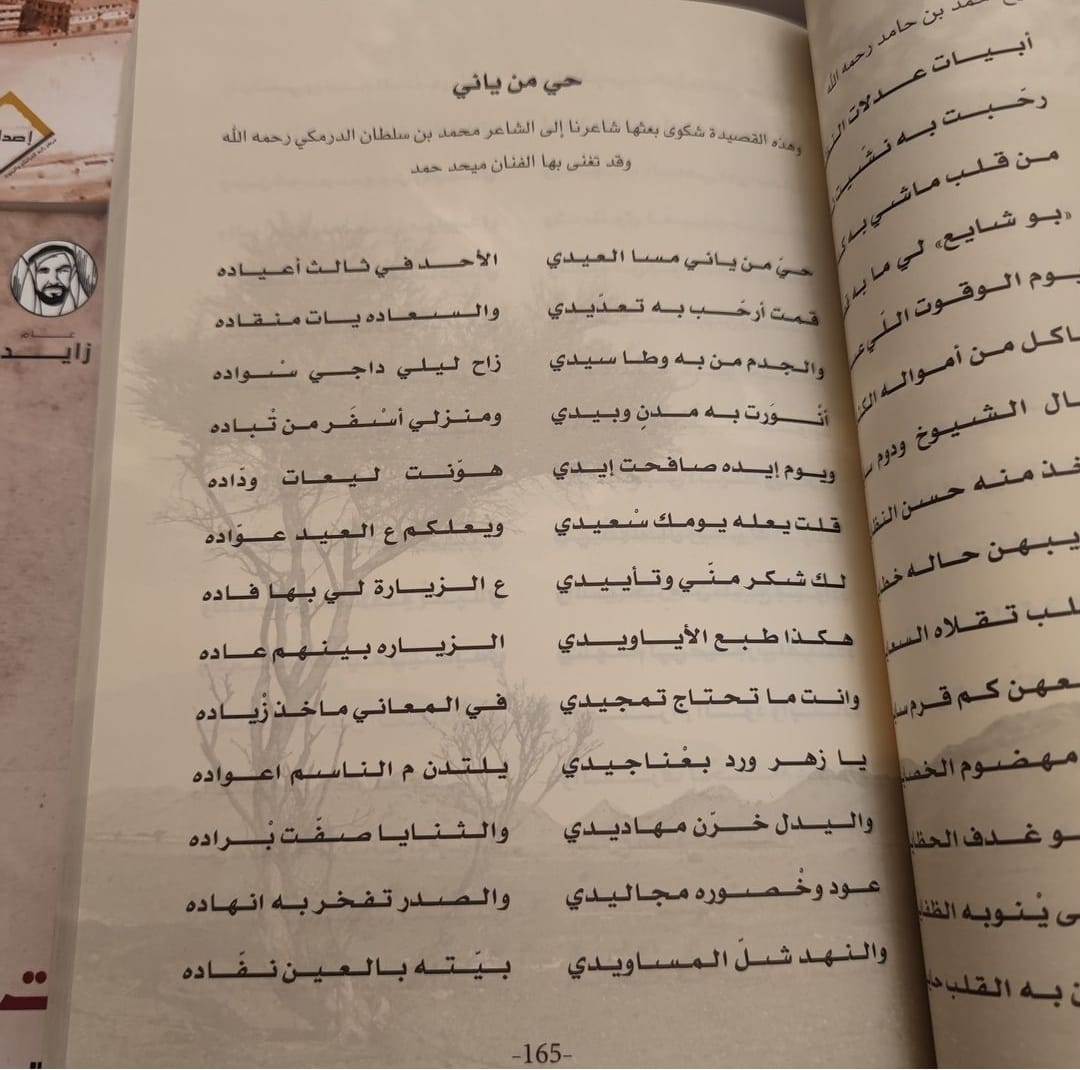 حي من ياني
وهذه القصيدة شكوى بعثها شاعرنا إلى الشاعر محمد بن سلطان الدرمكي رحمه الله
وقد تغنى بها الفنان ميحد حمد
حيّ من ياني مسا العيدي الأحد في ثالث أعياده
قمت أرحّب به تعدّيدي والسعاده يات منقاده
والجدم من به وطا سيدي زاح ليلي داجي سْواده
أنْوَرت به مدنٍ وبيدي ومنزلي أسْفَر من تْباده
ويوم إيده صافحت إيدي هوّنت ليعات ودّاده
قلت يعله يومك سْعيدي ويعلكم ع العيد عوّاده
لك شكر منّي وتأييدي ع الزيارة لي بها فاده
هكذا طبع الأياويدي الزياره بينهم عاده
وانت ما تحتاج تمجيدي في المعاني ماخذ زْياده
يا زهر ورد بعْناجيدي يلتدن م الناسم اعواده
واليدل خرّن مهاديدي والثنايا صفّت بْراده
عود وخْصوره مجاليدي والصدر تفخر به انهاده
والنهد شلّ المساويدي بيّته بالعين نفّاده
-165-
بن حامد رحمه الله
أبيات عدلات
رحّبت به نشّيت
من قلب ماشي به
«بو شايع» لي ما به
يوم الوقوت اللّي
من أمواله
الشيوخ ودوم
منه حسن
يبهن حاله
تقلاه
كم قرم
مهضوم
غدف
يْنوبه
به القلب
عام
زايد